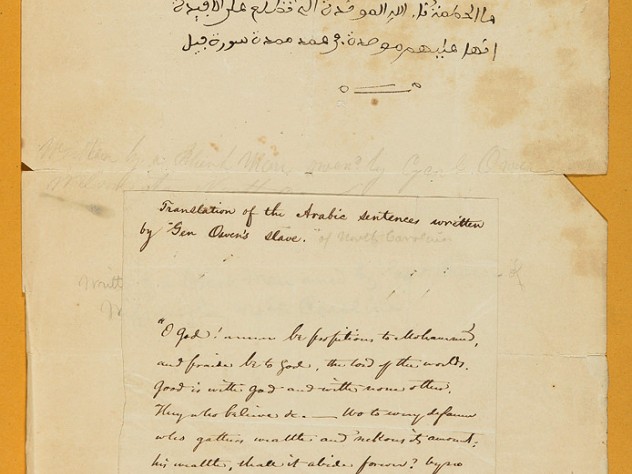 ما الحطمة نار الله الموقدة التي تطلع على الافيدة
انها عليهم موصدة في عمد ممددة سورة
Written by a Blind Man owned by Gen Owen
Translation of the Arabic sentences written
by "Gen Owen's slave." of North Carolina
"O God! be propitious to Mohammed,
and praise be to God, the lord of the worlds.
Good is with god and with none other.
They who believe &c. — Wo to every defamer
who gathers wealth and reckons its amount;
his wealth, shall it abide forever? by no